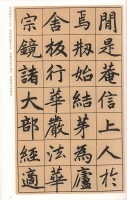 閒是菴信上人於
焉剏始結茅為廬
舍板行華嚴法華
宗鏡諸大部經適